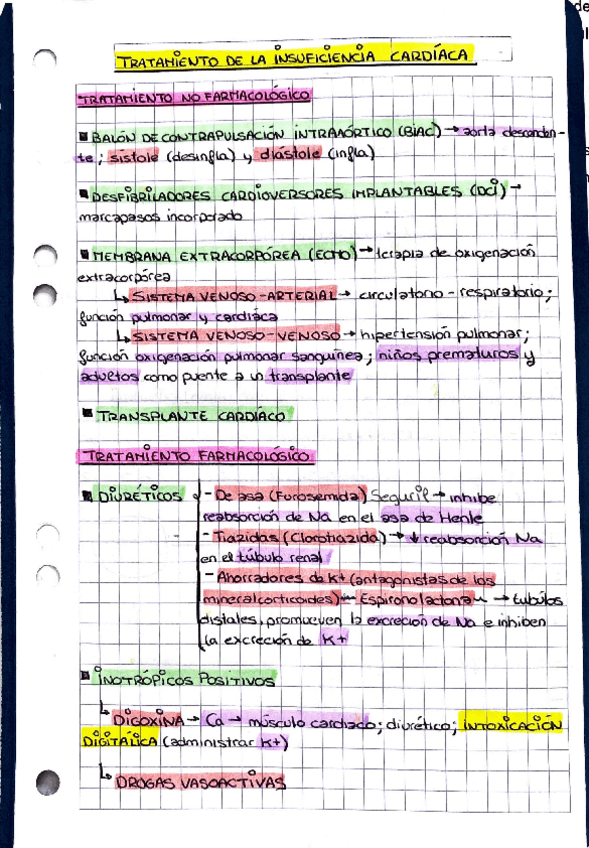 de
TRATAMIENTO DE LA INSUFICIENCIA CARDÍACA
TRATAMIENTO NO FARMACOLÓGICO
BALÓN DE CONTRAPULSACIÓN INTRAAÓRTICO (BIAC) → aorta descenden-
te; sístole (desinfla) y diástole (infla)
DESFIBRILADORES CARDIOVERSORES IMPLANTABLES (DCI) →
marcapasos incorporado
MEMBRANA EXTRACORPÓREA (ECMO) → terapia de oxigenación
extracorpórea
↳ SISTEMA VENOSO-ARTERIAL → circulatorio - respiratorio;
función pulmonar y cardíaca
↳ SISTEMA VENOSO-VENOSO → hipertensión pulmonar;
función oxigenación pulmonar sanguínea; niños prematuros y
adultos como puente a un transplante
TRANSPLANTE CARDÍACO
TRATAMIENTO FARMACOLÓGICO
DIURÉTICOS - De asa (Furosemida) Seguril → inhibe
reabsorción de Na en el asa de Henle
- Tiazidas (Clorotiazida) → ↓ reabsorción Na
en el túbulo renal
- Ahorradores de K+ (antagonistas de los
mineralcorticoides) - Espironolactona → tubulos
distales, promueven la excreción de Na e inhiben
la excreción de K+
INOTRÓPICOS POSITIVOS
↳ DIGOXINA → Ca → músculo cardíaco; diurético; INTOXICACIÓN
DIGITÁLICA (administrar K+)
↳ DROGAS VASOACTIVAS